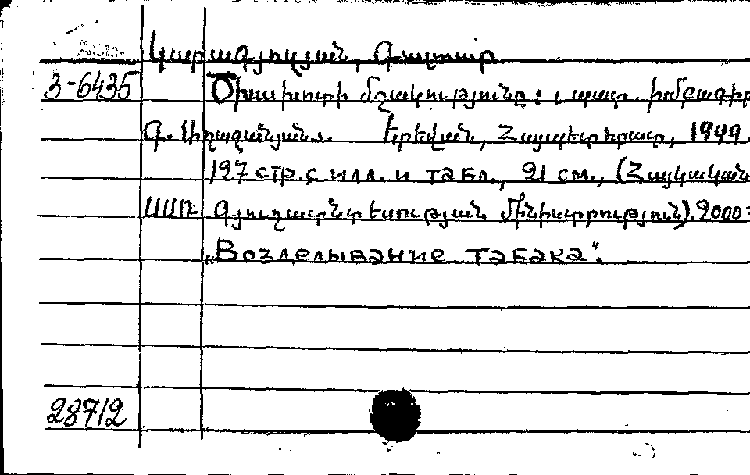 Կարագյուլյան, Գասպար
3-6435 Ծխախոտի մշակությունը: պատ. խմբագիր
Գ. Միրզաջանյան. Երեվան, Հայպետհրատ, 1949.
197 стр. с илл. и табл., 21 см., (Հայկական
ՍՍՌ Գյուղատնտեսության մինիստրություն). 2000
„Возделывание табака".
28712